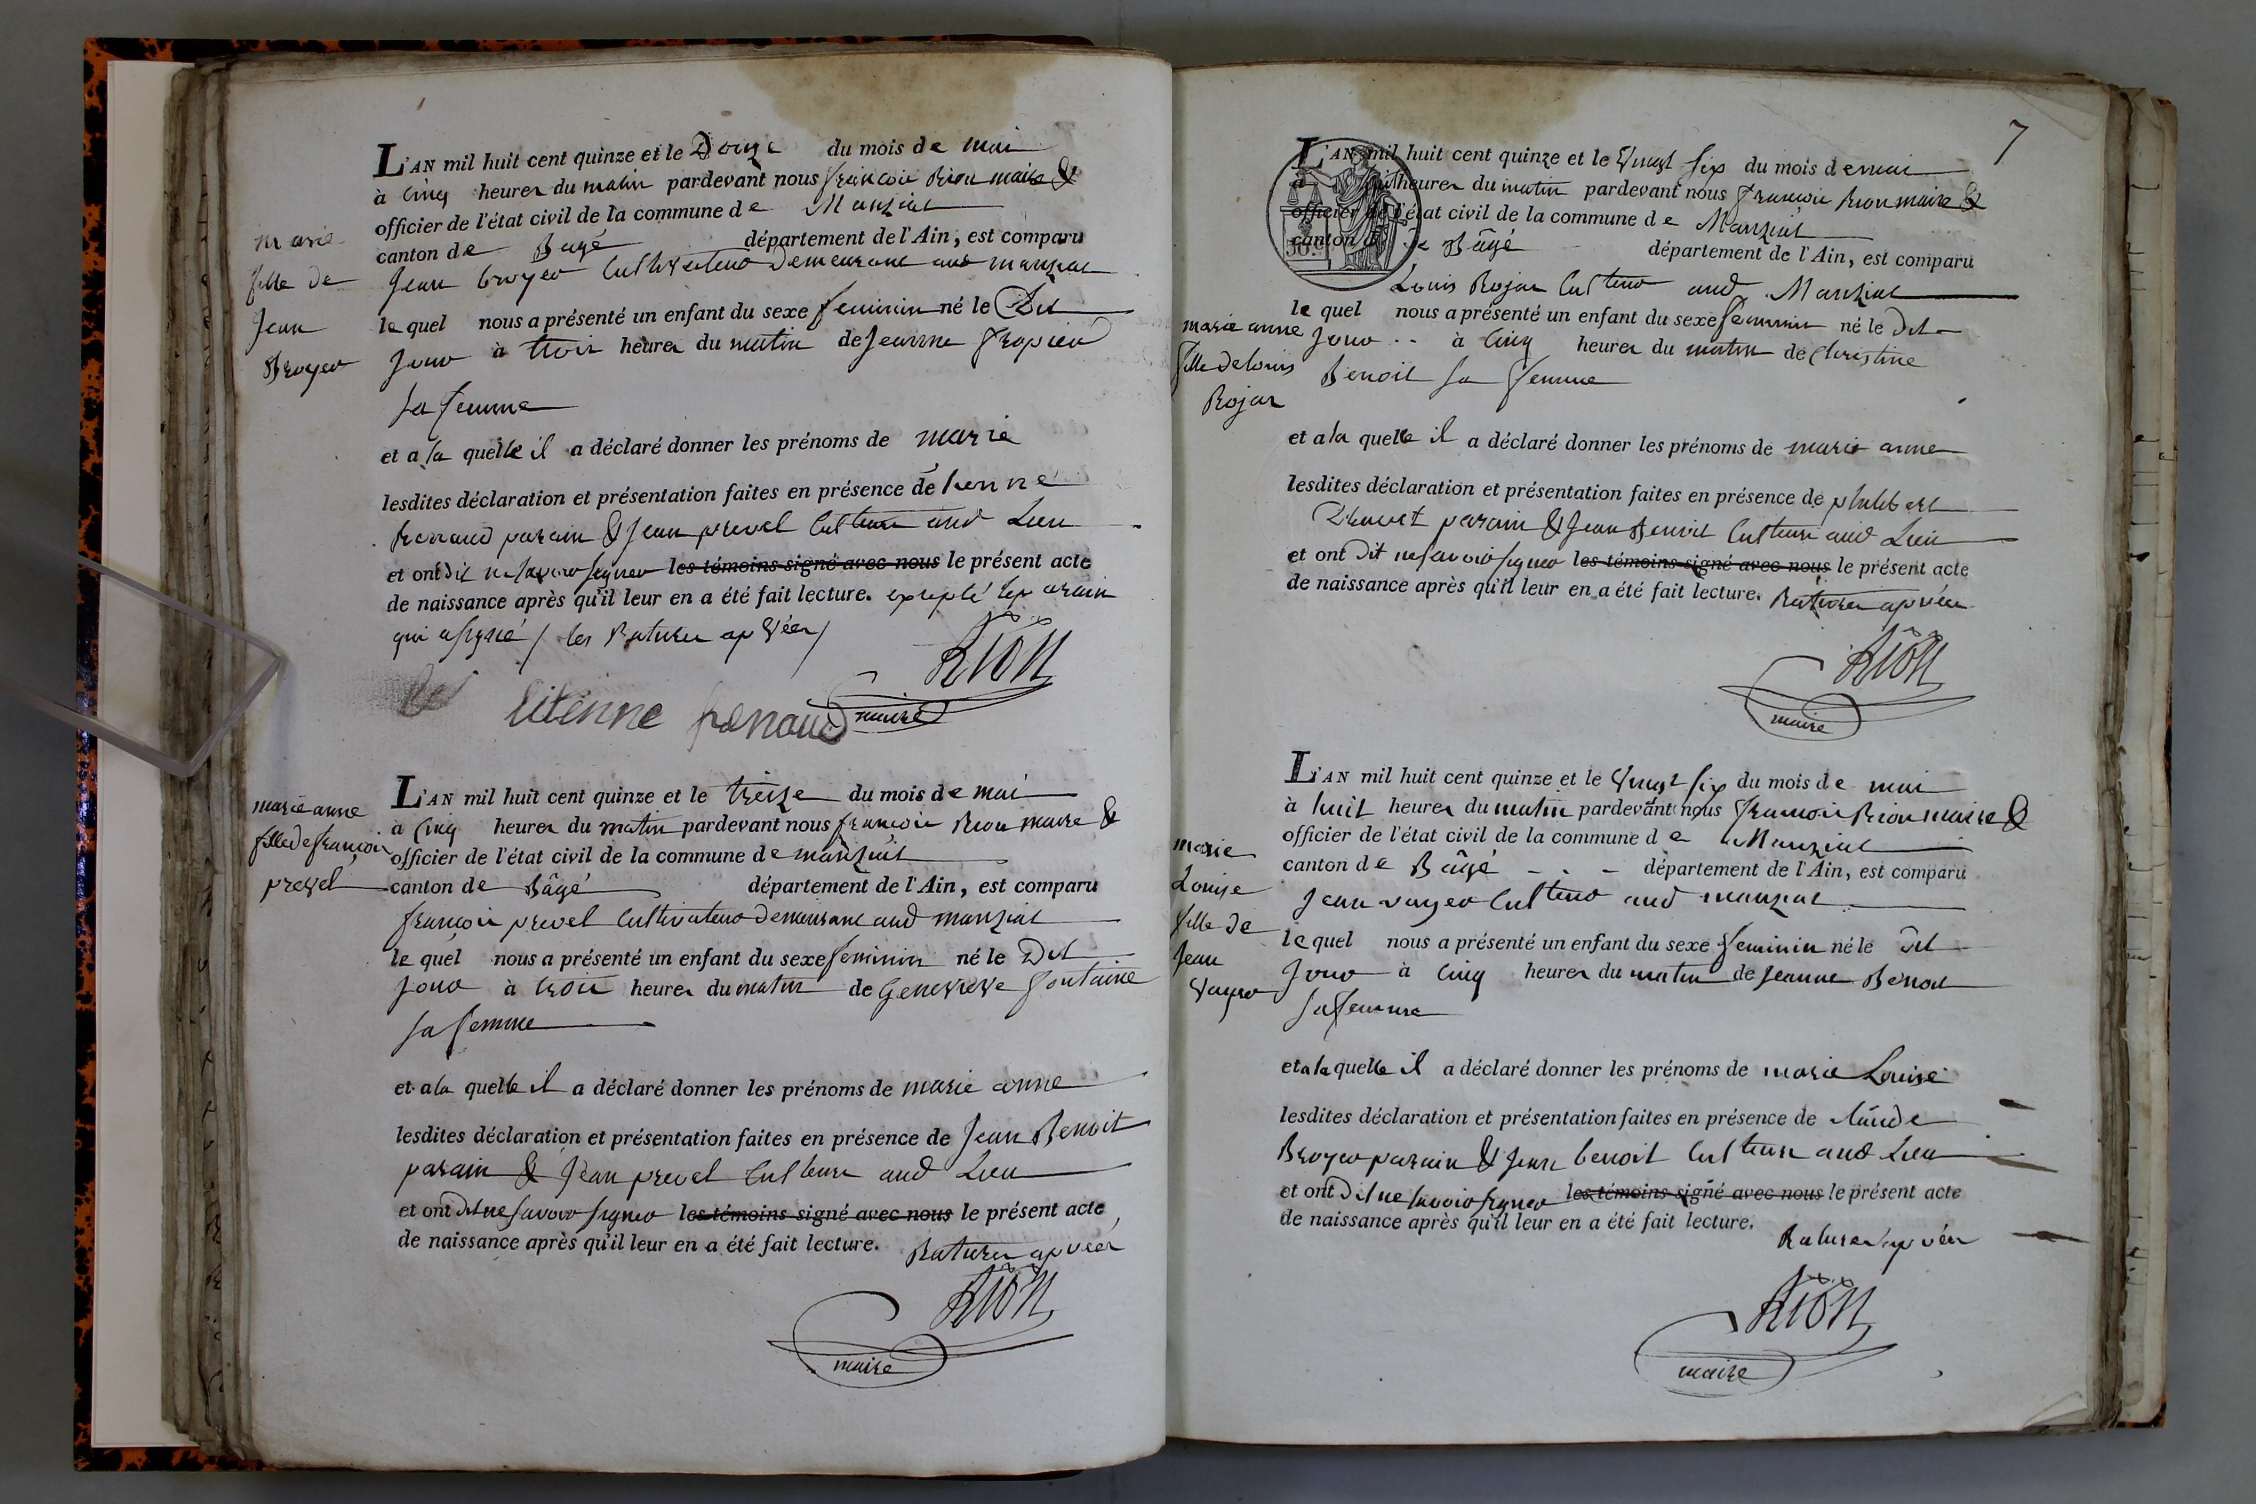 L'AN mil huit cent quinze et le Douze du mois de mai
à Cinq heures du matin pardevant nous françois Rion maire &
officier de l'état civil de la commune de Manziat
canton de Bagé département de l'Ain, est comparu
marie
fille de
Jean
Broyer
Jean broyer Cultivateur Demeurant aud manziat
le quel nous a présenté un enfant du sexe feminin né le Dit
Jour à trois heures du matin de Jeanne
sa femme
et a la quelle il a déclaré donner les prénoms de marie
lesdites déclaration et présentation faites en présence de
Renaud parain & Jean prevel Culteurs aud Lieu
et ont dit ne savoir signer les témoins signé avec nous le présent acte
de naissance après qu'il leur en a été fait lecture. excepté le parain
qui a signé / les Ratures apvées /
Rion
maire
Etienne Renaud
L'AN mil huit cent quinze et le treize du mois de mai
marie anne
fille de françois
prevel
à Cinq heures du matin pardevant nous françois Rion maire &
officier de l'état civil de la commune de manziat
canton de Bâgé département de l'Ain, est comparu
françois prevel Cultivateur Demeurant aud manziat
le quel nous a présenté un enfant du sexe feminin né le Dit
Jour à trois heures du matin de Genevieve fontaine
sa femme
et a la quelle il a déclaré donner les prénoms de marie anne
lesdites déclaration et présentation faites en présence de Jean Benoit
parain & Jean prevel Culteurs aud Lieu
et ont dit ne savoir signer les témoins signé avec nous le présent acte
de naissance après qu'il leur en a été fait lecture. Ratures apvées
Rion
maire
7
L'AN mil huit cent quinze et le Vingt six du mois de mai
à heures du matin pardevant nous françois Rion maire &
officier de l'état civil de la commune de Manziat
canton de Bâgé département de l'Ain, est comparu
Louis Rojat Culteur aud Manziat
le quel nous a présenté un enfant du sexe feminin né le Dit
marie anne
fille de louis
Rojat
Jour à Cinq heures du matin de Christine
Benoit sa femme
et a la quelle il a déclaré donner les prénoms de marie anne
lesdites déclaration et présentation faites en présence de philibert
parain & Jean Benoit Culteurs aud Lieu
et ont dit ne savoir signer les témoins signé avec nous le présent acte
de naissance après qu'il leur en a été fait lecture. Ratures apvées
Rion
maire
L'AN mil huit cent quinze et le Vingt six du mois de mai
à huit heures du matin pardevant nous françois Rion maire &
officier de l'état civil de la commune de Manziat
canton de Bâgé département de l'Ain, est comparu
marie
Louise
fille de
Jean
Vayer
Jean vayer Culteur aud manziat
le quel nous a présenté un enfant du sexe feminin né le dit
Jour à Cinq heures du matin de Jeanne Benoit
sa femme
et a la quelle il a déclaré donner les prénoms de marie Louise
lesdites déclaration et présentation faites en présence de Claude
Broyer parain & Jean benoit Culteurs aud Lieu
et ont dit ne savoir signer les témoins signé avec nous le présent acte
de naissance après qu'il leur en a été fait lecture.
Ratures apvées
Rion
maire